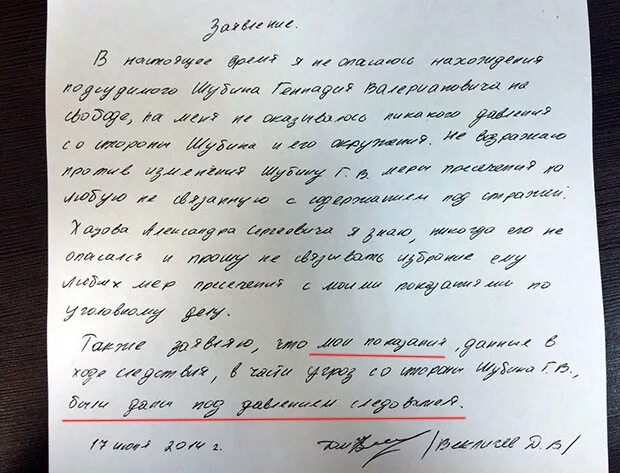 Заявление.
В настоящее время я не опасаюсь нахождения
подсудимого Шубина Геннадия Валериановича на
свободе, на меня не оказывалось никакого давления
со стороны Шубина и его окружения. Не возражаю
против изменения Шубину Г.В. меры пресечения на
любую не связанную с содержанием под стражей.
Хазова Александра Сергеевича я знаю, никогда его не
опасался и прошу не связывать избрание ему
любых мер пресечения с моими показаниями по
уголовному делу.
Также заявляю, что мои показания, данные в
ходе следствия, в части угроз со стороны Шубина Г.В.,
были даны под давлением следователя.
17 июня 2014 г. /Векличев Д.В/